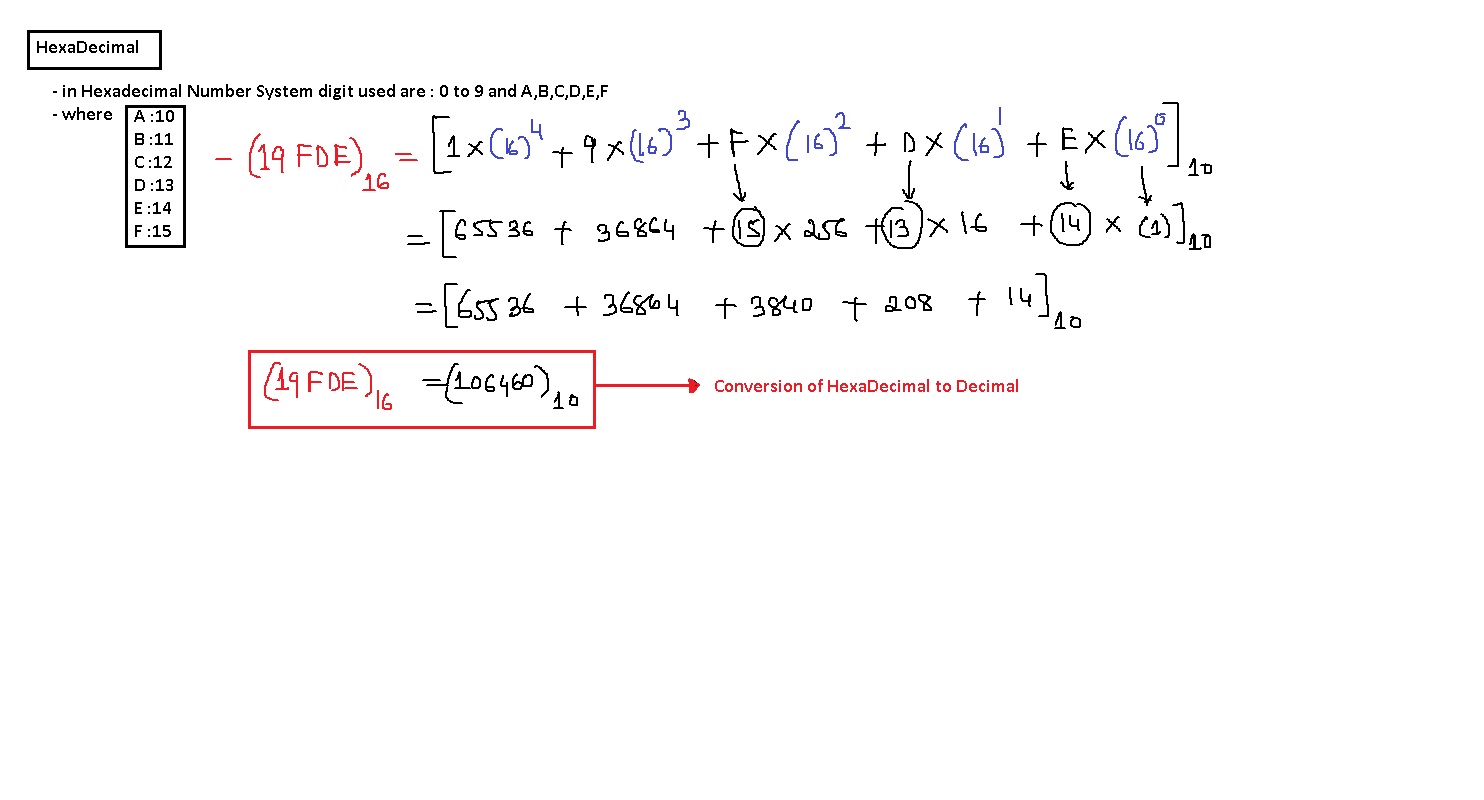 HexaDecimal
- in Hexadecimal Number System digit used are : 0 to 9 and A,B,C,D,E,F
- where
A :10
B :11
C :12
D :13
E :14
F :15
- (19 FDE)₁₆ = [1 × (16)⁴ + 9 × (16)³ + F × (16)² + D × (16)¹ + E × (16)⁰]₁₀
= [65536 + 36864 + 15 × 256 + 13 × 16 + 14 × (1)]₁₀
= [65536 + 36864 + 3840 + 208 + 14]₁₀
(19 FDE)₁₆ = (106460)₁₀
Conversion of HexaDecimal to Decimal